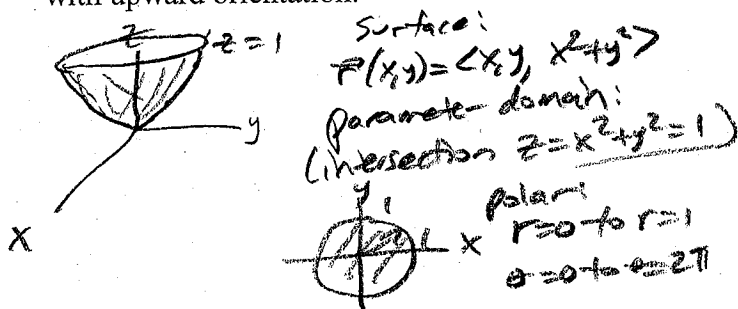 with upward orientation.
z
z=1
y
x
Surface:
r(x,y)=<x,y, x²+y²>
parameter domain:
(intersection z=x²+y²=1)
y
1
1
x
polar:
r=0 to r=1
θ=0 to θ=2π